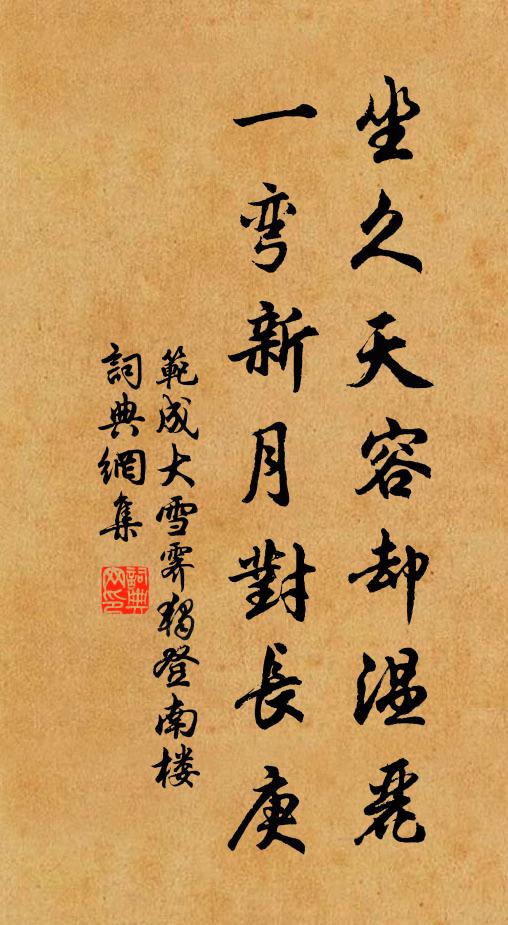 坐久天容却温麗
一弯新月對長庚
範成大雪霽獨登南楼
詞典網集
詞典网印